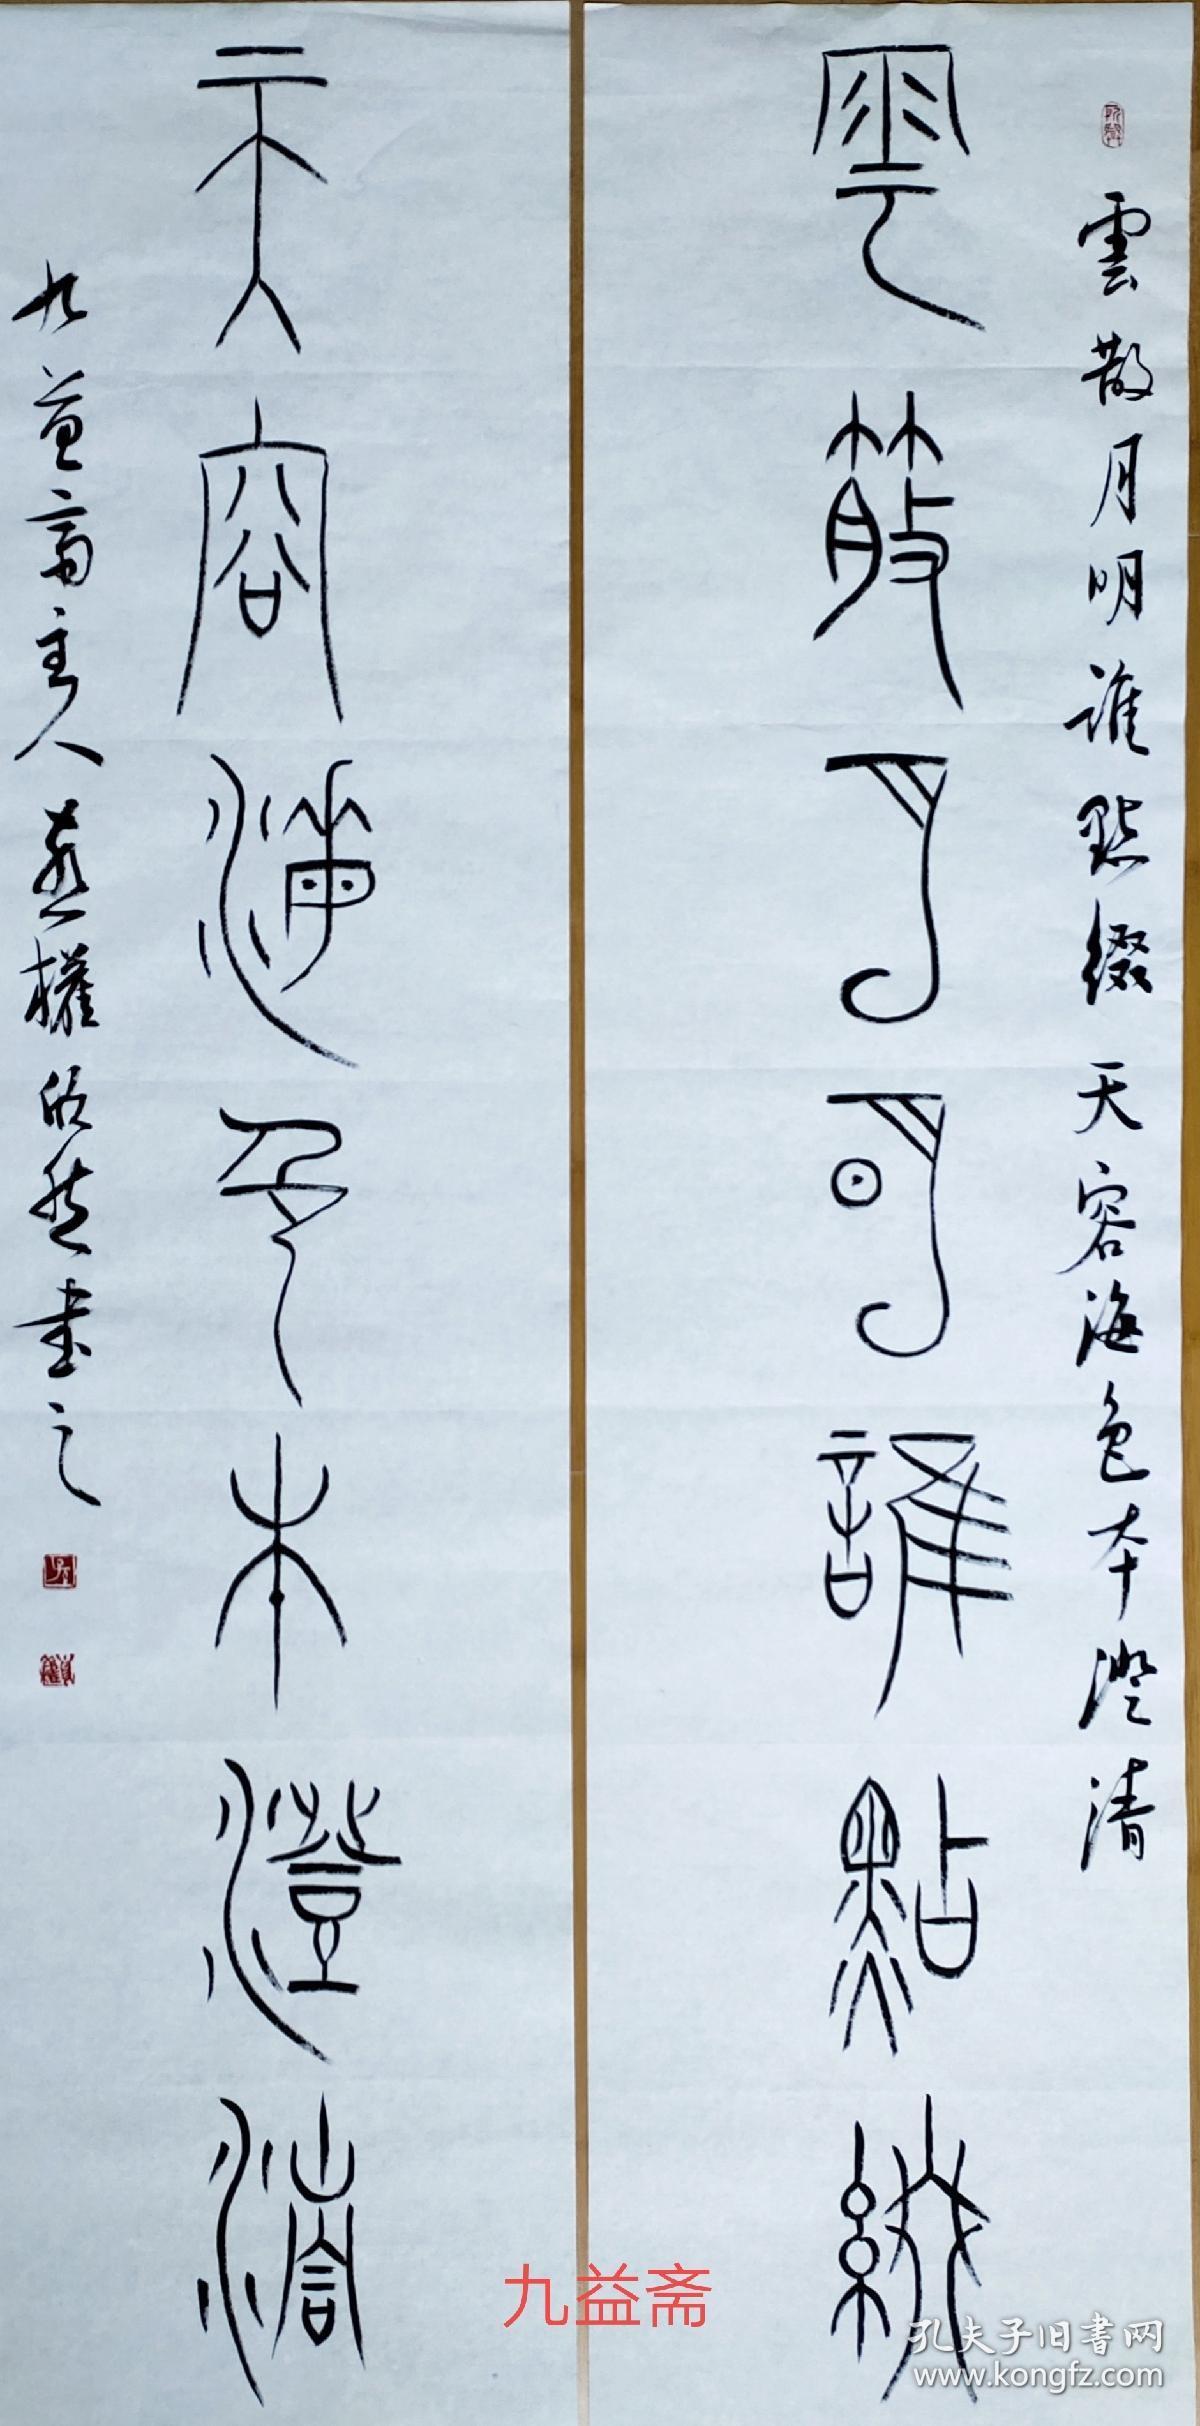 雲散月明誰點綴天容海色本澄清
雲散月明誰點綴
天容海色本澄清
九益齋主人
權欣然書之
九益斋
孔夫子旧书网
www.kongfz.com